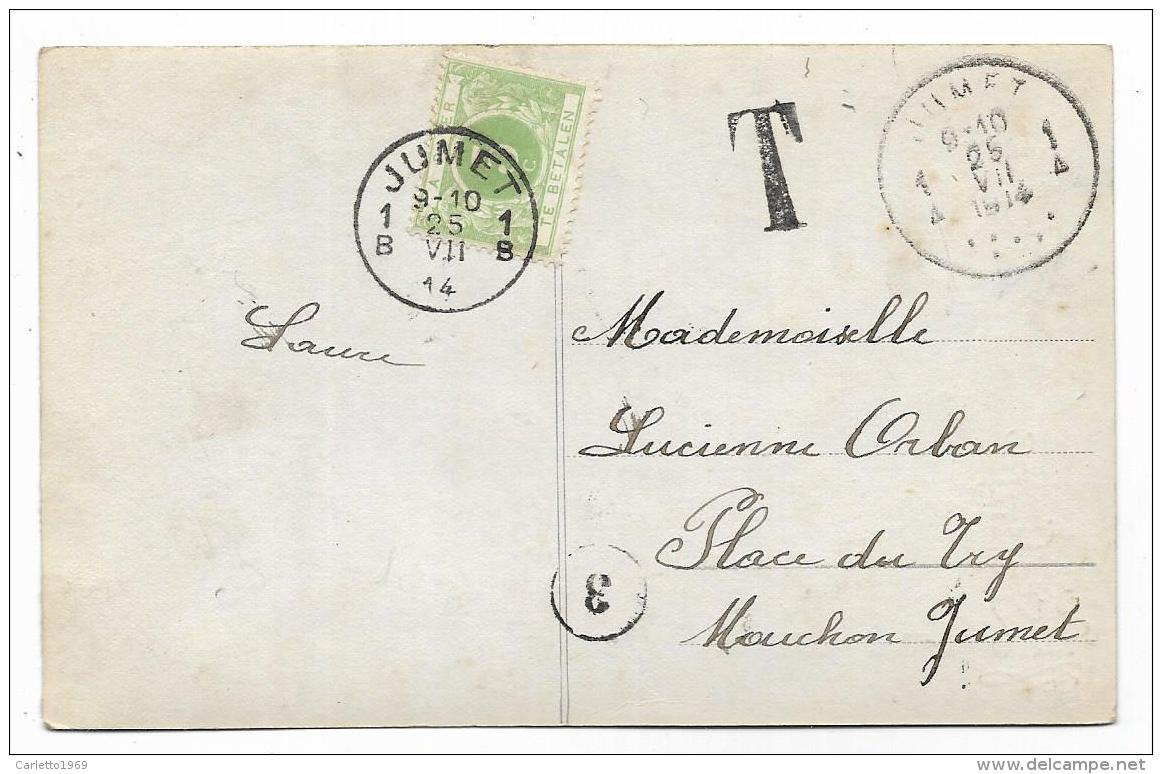 JUMET
9-10
1 25 1
B VII B
14
A PAYER
TE BETALEN
T
JUMET
9-10
1 25 1
A VII A
1914
Laure
Mademoiselle
Lucienne Orban
Place du Try
Mouchon Jumet
3
Carletto1969
www.delcampe.net